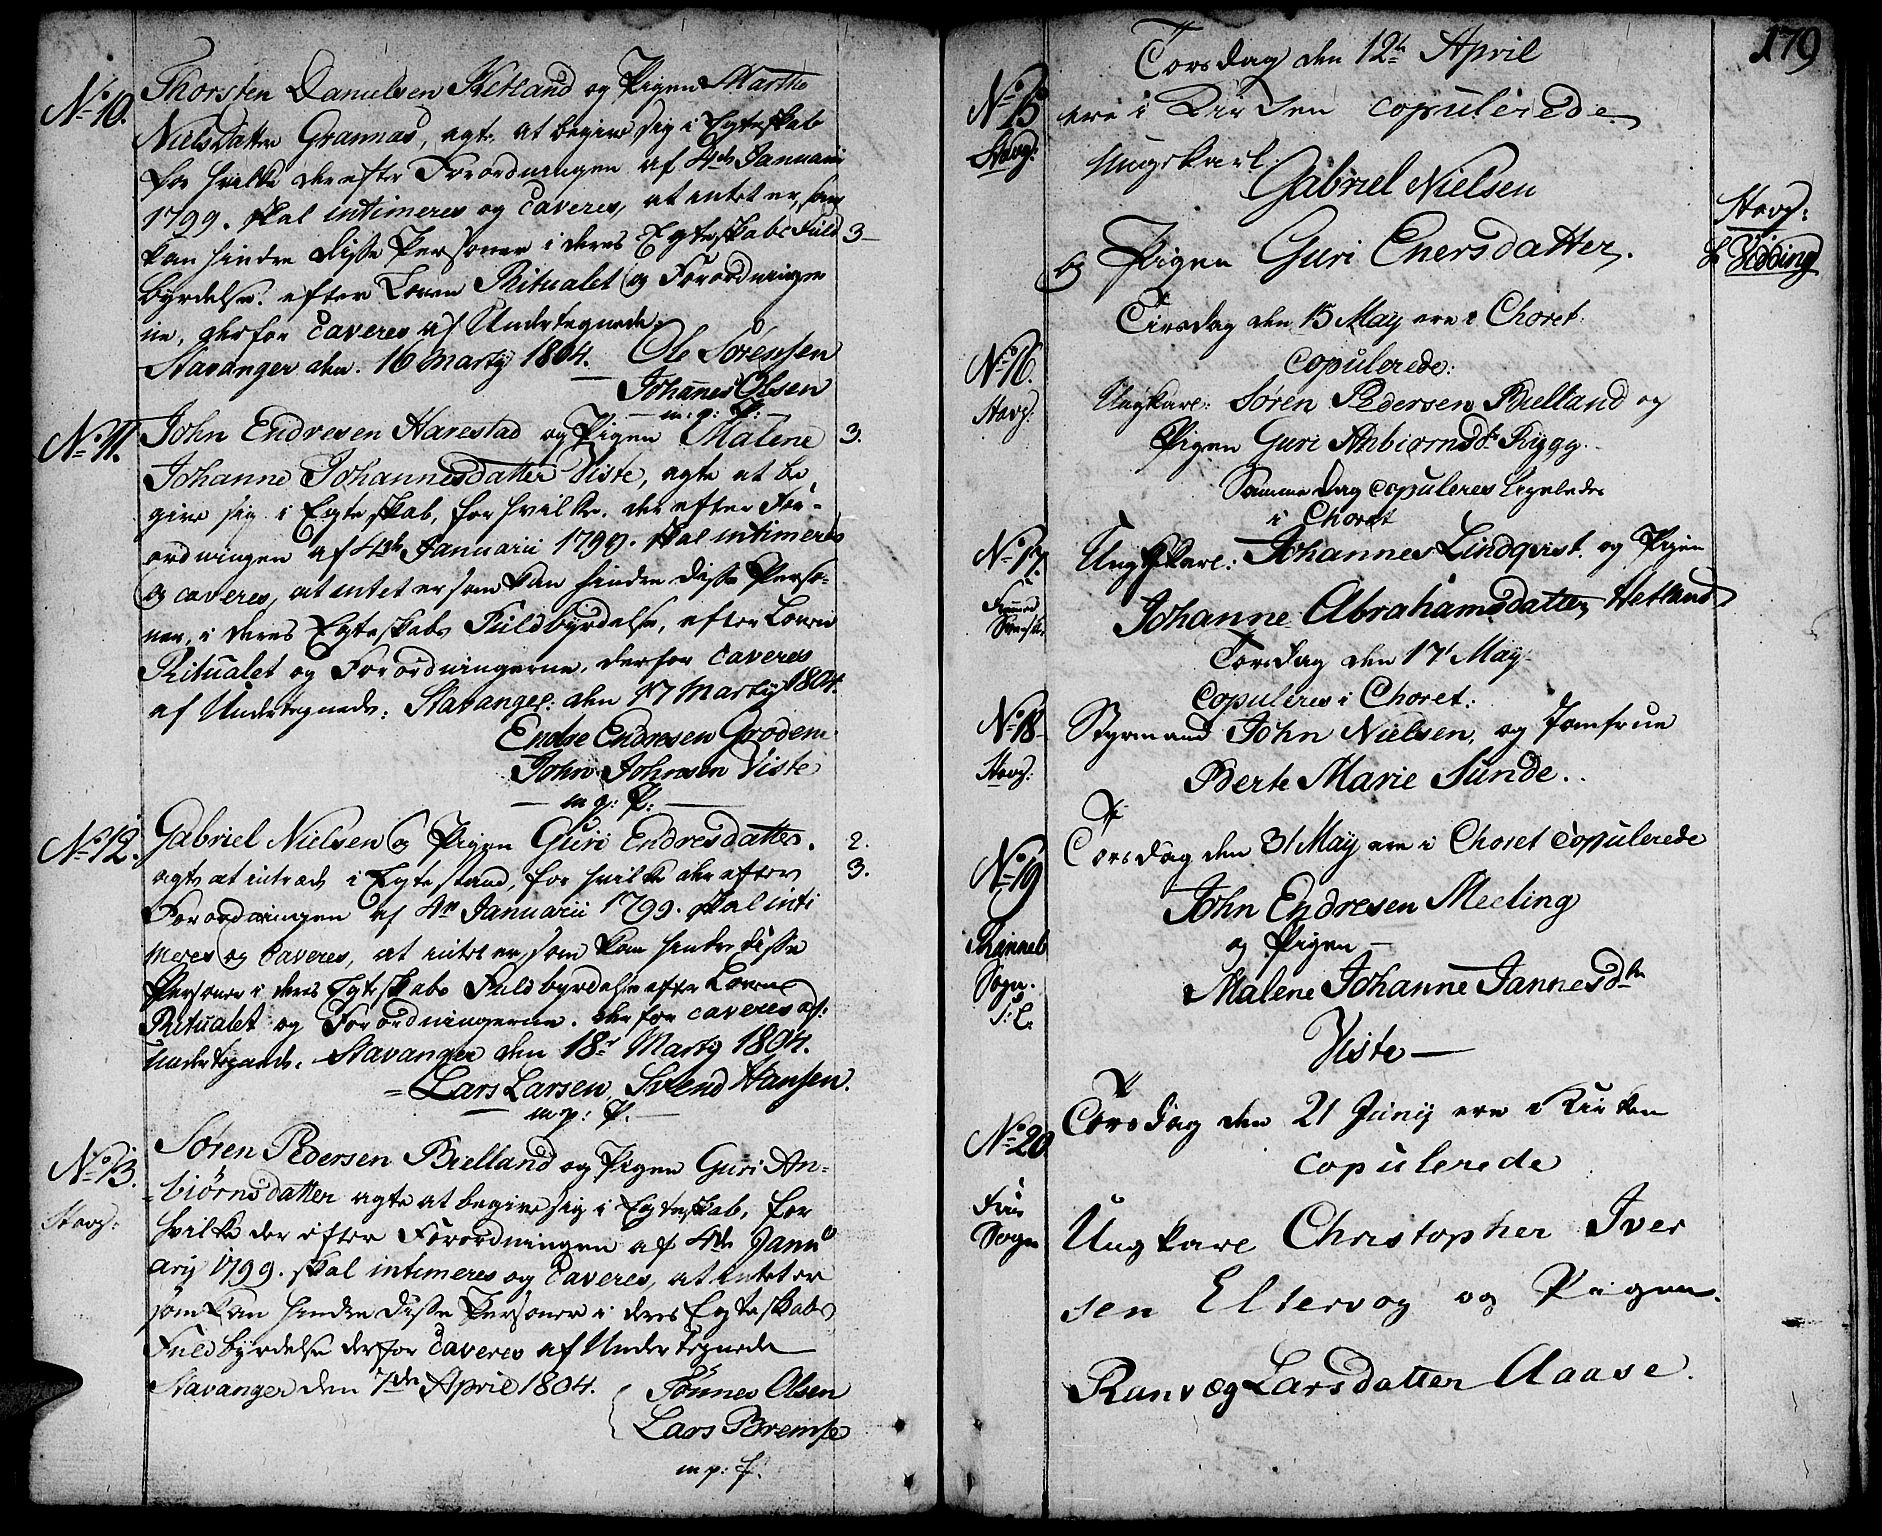 No 10. Thorsten Danielsen Hetland og Pigen Marthe
Nielsdatter Grannæs, agte at begive sig i Egteskab
for hvilke der efter Forordningen af 4de Januarii
1799. skal intimeres og caveres, at intet er, som
kan hindre disse Personer i deres Egteskabs Fuld 3
byrdelse. efter Loven Ritualet og Forordninger
ne, derfor caveres af Undertegnede.
Stavanger den. 16 Martÿ 1804. Ole Sörensen
Johannes Olsen
m: p: P:
No 11. John Endresen Harestad og Pigen Malene 3.
Johanne Johannesdatter Viste, agte at be
give sig i Egteskab, for hvilke. der efter For-
ordningen af 4de Januarii 1799. skal intimeres
og caveres, at intet er som kan hindre disse Perso-
ner, i deres Egteskabs Fuldbyrdelse, efter Loven
Ritualet og Forordningerne, derfor caveres
af Undertegnede: Stavanger: den 17 Martÿ 1804.
Endre Endresen Grödem
John Johnsen Viste
m p: P:
No 12. Gabriel Nielsen og Pigen Guri Endresdatter. 2.
agte at indtræde i Egtestand, for hvilke der efter 3.
Forordningen af 4de Januarii 1799. skal inti
meres og caveres, at intet er, som kan hindre disse
Personer i deres Egteskabs Fuldbyrdelse efter Loven
Ritualet og Forordningerne. derfor caveres af:
Undertegnede. Stavanger den 18de Martÿ 1804.
Lars Larsen, Svend Hansen.
m p: P.
No 13. Sören Pedersen Bielland og Pigen Guri An-
Stavg: biörnsdatter agte at begive sig i Egteskab, for
hvilke der efter Forordningen af 4de Janu
arÿ 1799. skal intimeres og caveres, at intet er
som kan hindre disse Personer i deres Egteskabs
Fuldbyrdelse derfor caveres af Undertegnede
Stavanger den 7de April 1804. Tönnes Olsen
Lars Bremse
m p: P.
179
Torsdag den 12te April
No 15 ere i Kirken copulerede
Stavg: Ungekarl:
Gabriel Nielsen
Stavg:
og Pigen Guri Enersdatter.
Tirsdag den 15 May ere i Choret
No 16. copulerede:
Stavg: Ungkarl: Sören Pedersen Bielland og
Pigen Guri Anbiörnsdtr Rygg.
Samme Dag copuleres ligeledes
i Choret
No 17. Ungkarl: Johannes Lindqvist og Pigen
Johanne Abrahamsdatter Hetland
Torsdag den 17 May
Copuleres i Choret:
No 18 Styrmand John Nielsen, og Jomfrue
Stavg: Berte Marie Sunde.
Torsdag den 31 May ere i Choret copulerede
No 19 John Endresen Meeling
og Pigen
Sogn. Malene Johanne Jannesdtr
Viste
Torsdag den 21 Junÿ ere i Kirken
No 20 copulerede
Sogn Ungkarl Christopher Iver
sen Eltervog og Pigen
Runvæg Larsdatter Aaase.